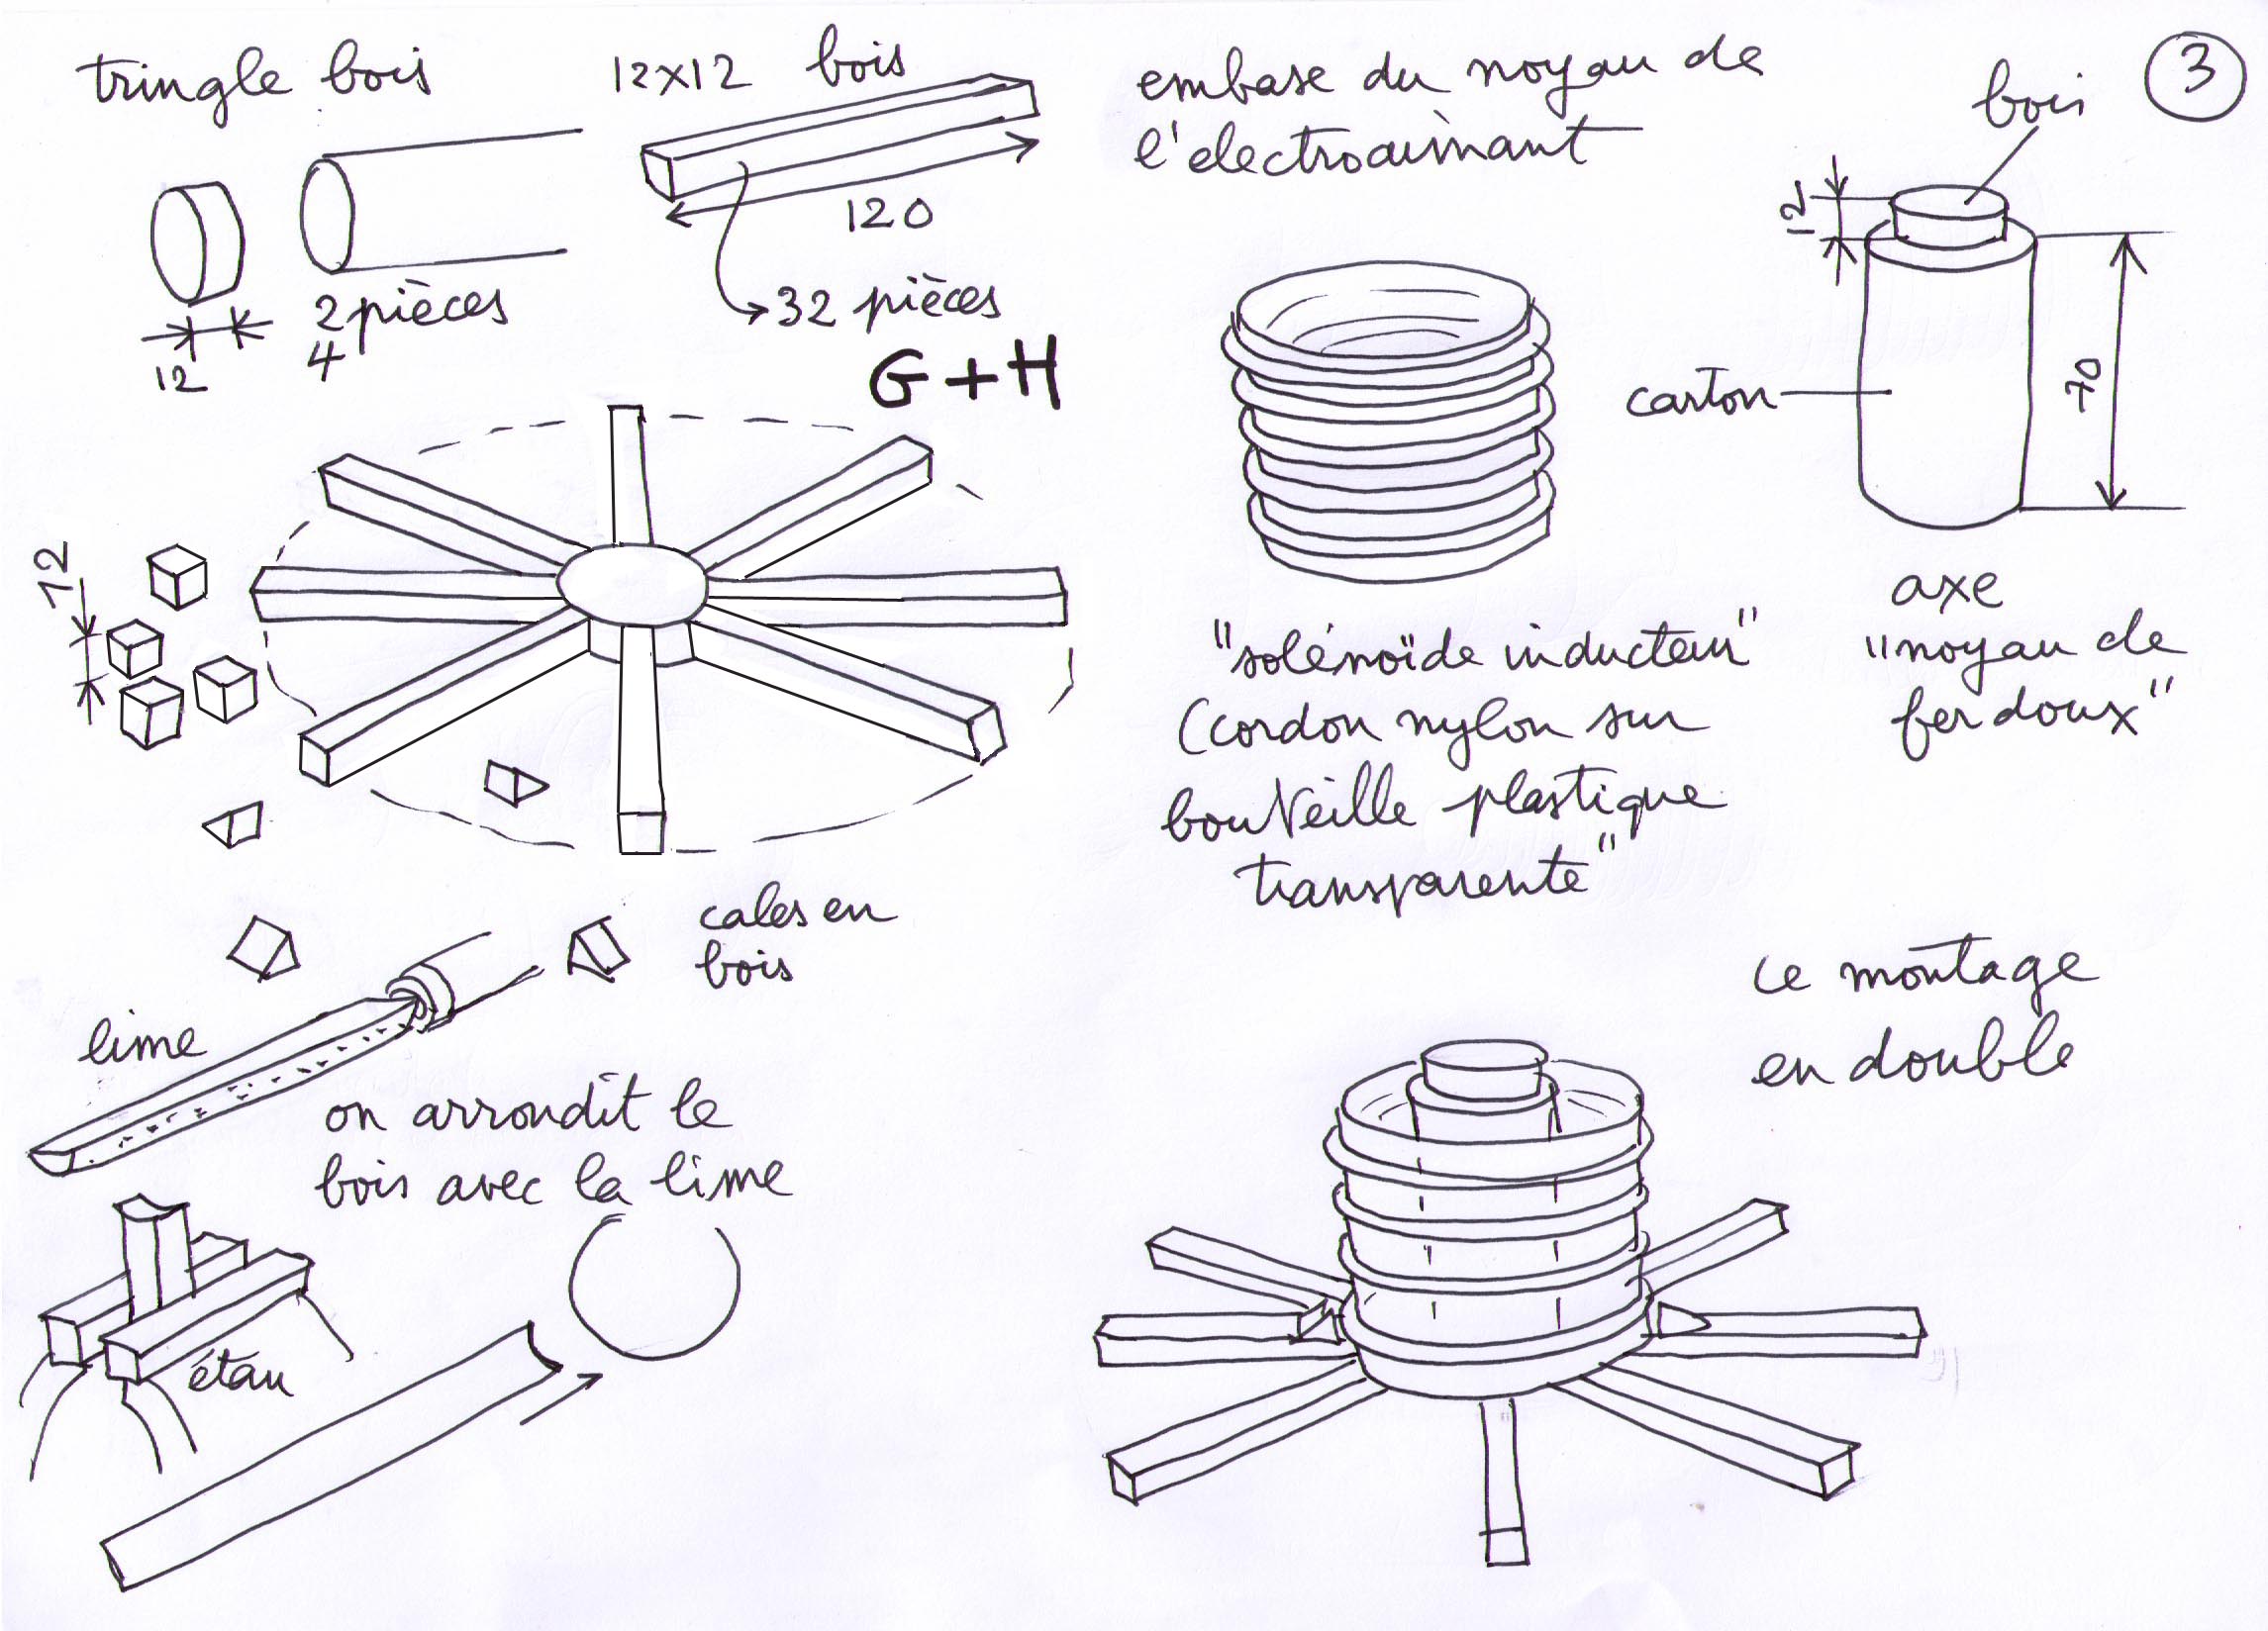 tringle bois
12
2 pièces
4
12x12 bois
120
32 pièces
G + H
12
cales en
bois
lime
on arrondit le
bois avec la lime
étau
embase du noyau de
l'électroaimant
3
bois
12
carton
70
"solénoïde inducteur"
(cordon nylon sur
bouteille plastique
transparente"
axe
"noyau de
fer doux"
ce montage
en double